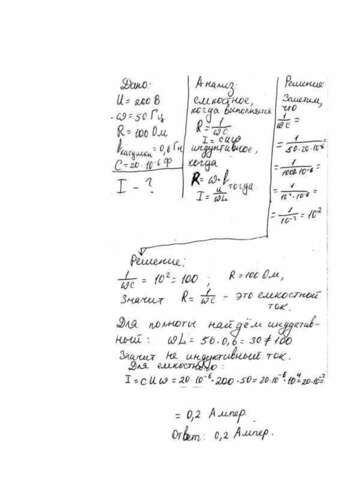 Дано:
U = 200 В
ω = 50 Гц
R = 100 Ом
L катушки = 0,6 Гн
C = 20·10⁻⁶ Ф
I - ?
Анализ:
емкостное,
когда выполняется
R = 1/ωC
I = CUω
индуктивное,
когда
R = ω·L
тогда
I = U/ωL
Решение
Заметим,
что
1/ωC =
= 1/50·20·10⁻⁶ =
= 1/1000·10⁻⁶ =
= 1/10³·10⁻⁶ =
= 1/10⁻³ = 10²
Решение:
1/ωC = 10² = 100 ; R = 100 Ом,
Значит R = 1/ωC - это емкостный
ток.
Для полноты найдём индуктив-
ный: ωL = 50·0,6 = 30 ≠ 100
Значит не индуктивный ток.
Для емкостного:
I = CUω = 20·10⁻⁶·200·50 = 20·10⁻⁶·10⁴ = 20·10⁻²
= 0,2 Ампер.
Ответ: 0,2 Ампер.